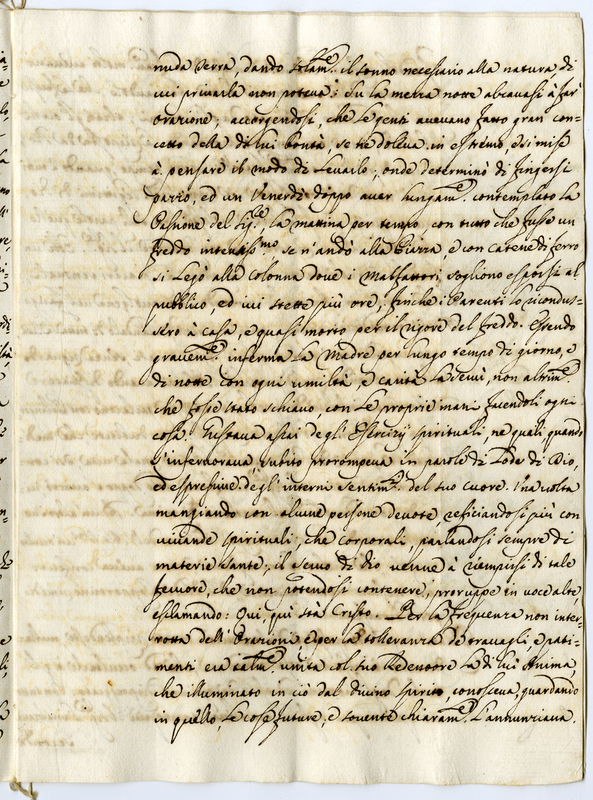 nuda terra, dando solam.e il sonno necessario alla natura, di
cui privarla non poteva: Sù la mezza notte alzavasi à far
orazione; accorgendosi, che le genti avevano fatto gran con=
cetto della di lui bontà, se ne doleva in estremo, e si mise
à pensare il modo di levarlo; onde determinò di fingersi
pazzo, ed un Venerdì doppo aver lungam.e contemplato la
Passione del Sig.re, la mattina per tempo, con tutto che fusse un
freddo intensiss.mo se n'andò alla Piazza, e con catene di ferro
si legò alla colonna dove i Malfattori sogliono esporsi al
pubblico, ed ivi stette più ore, finche i Parenti lo ricondus=
sero à casa, e quasi morto per il rigore del freddo. Essendo
gravem.e inferma la Madre per lungo tempo di giorno, e
di notte con ogni umiltà, e carità la servì, non altrim.e
che fosse stato schiavo, con le proprie mani facendoli ogni
cosa. Gustava assai degl'Esercizij spirituali, ne quali quando
s'infervorava, subito prorompeva in parole di Lode di Dio,
ed espressive degl'interni sentim.ti del suo cuore. Una volta
mangiando con alcune persone devote, reficiandosi più con
vivande spirituali, che corporali, parlandosi sempre di
materie sante, il servo di dio venne à riempirsi di tale
fervore, che non potendosi contenere, proruppe in voce alte
esclamando: Qui, quì stà Cristo. Per la frequenza non inter=
rotta dell'Orazioni, e per la tolleranza de travagli, e pati=
menti era unita col suo Redentore la di lui Anima
che illuminato in ciò dal divino spirito conosceva, guardando
in quello, le cose future, e sovente chiaram.e l'annunziava.